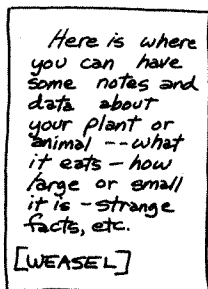 Here is where
you can have
some notes and
data about
your plant or
animal -- what
it eats - how
large or small
it is - strange
facts, etc.
[WEASEL]